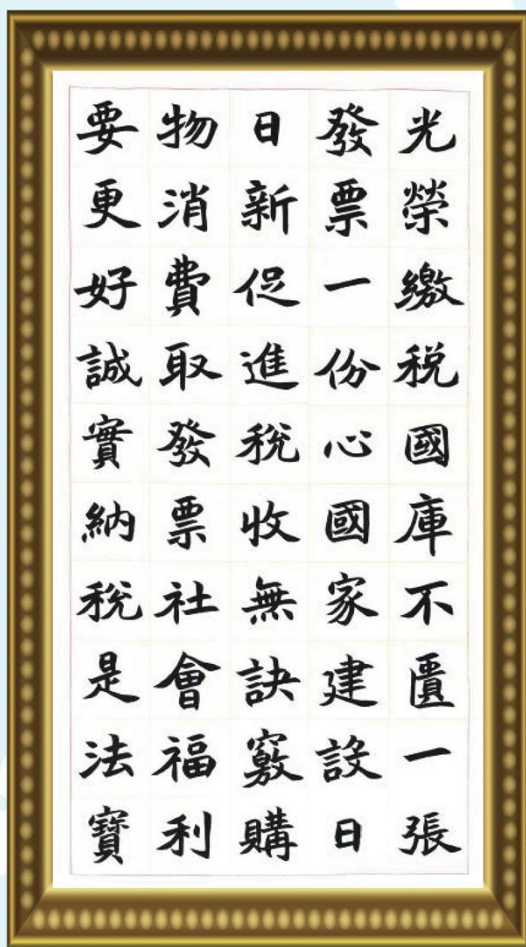 光榮繳税國庫不匱一張
發票一份心國家建設日
日新促進稅收無訣竅購
物消費取發票社會福利
要更好誠實納稅是法寶